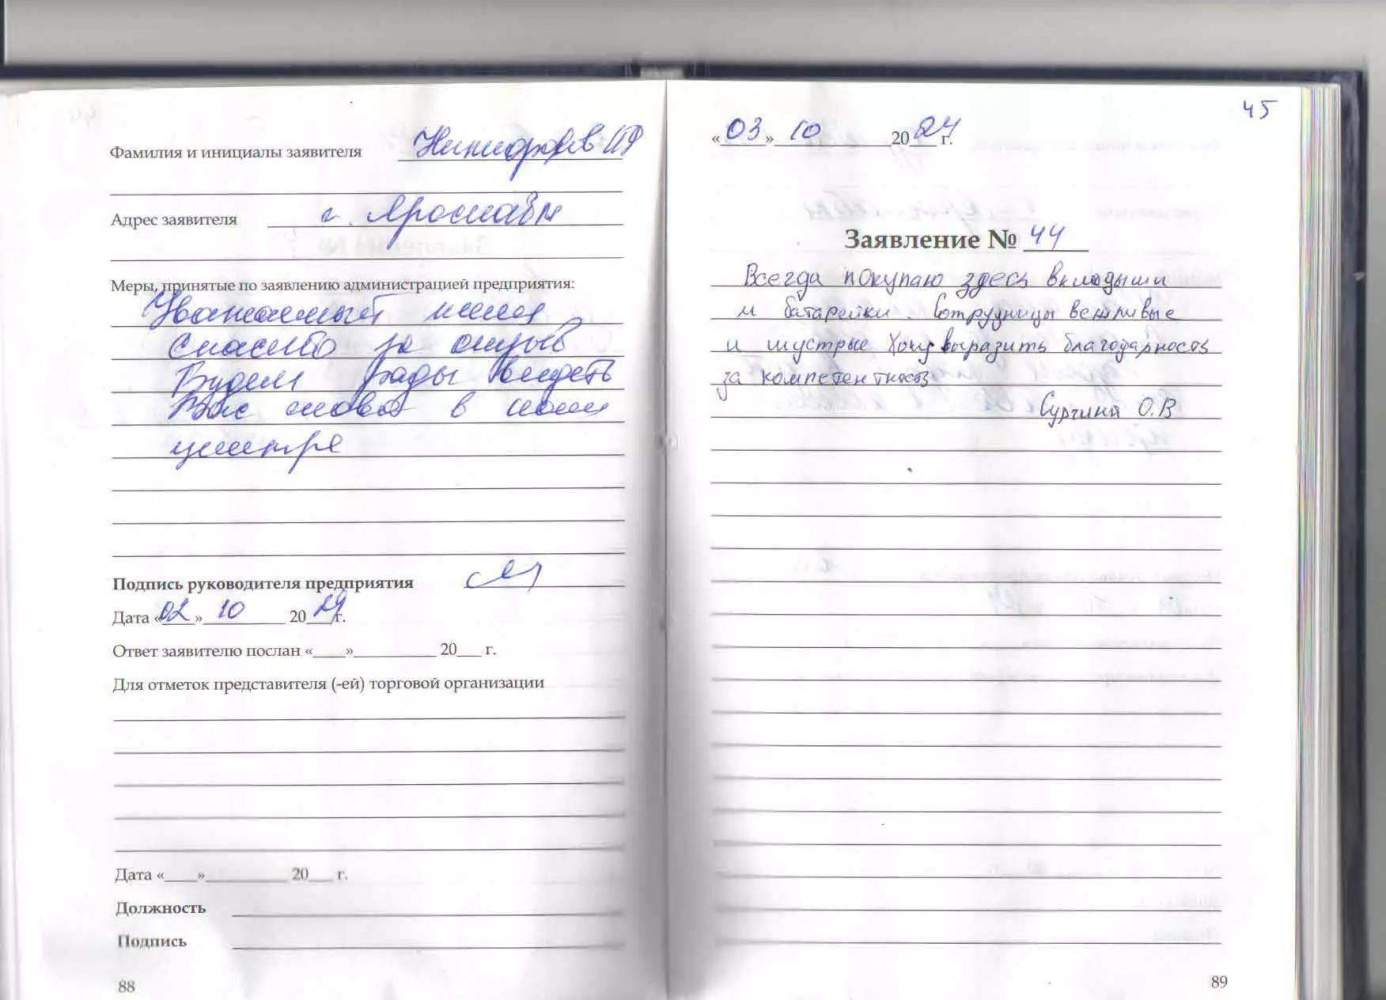 Фамилия и инициалы заявителя Никифоров
Адрес заявителя г. Ярославль
Меры, принятые по заявлению администрацией предприятия:
Уважаемый
спасибо за отзыв
Будем рады видеть
Вас снова в нашем
центре
Подпись руководителя предприятия
Дата «02» 10 2024 г.
Ответ заявителю послан «___»__________ 20___ г.
Для отметок представителя (-ей) торговой организации
Дата «____»__________ 20___ г.
Должность
Подпись
88
45
«03» 10 2024 г.
Заявление № 44
Всегда покупаю здесь вкладыши
и батарейки. Сотрудницы вежливые
и шустрые Хочу выразить благодарность
за компетентность
Сургина О.В
89